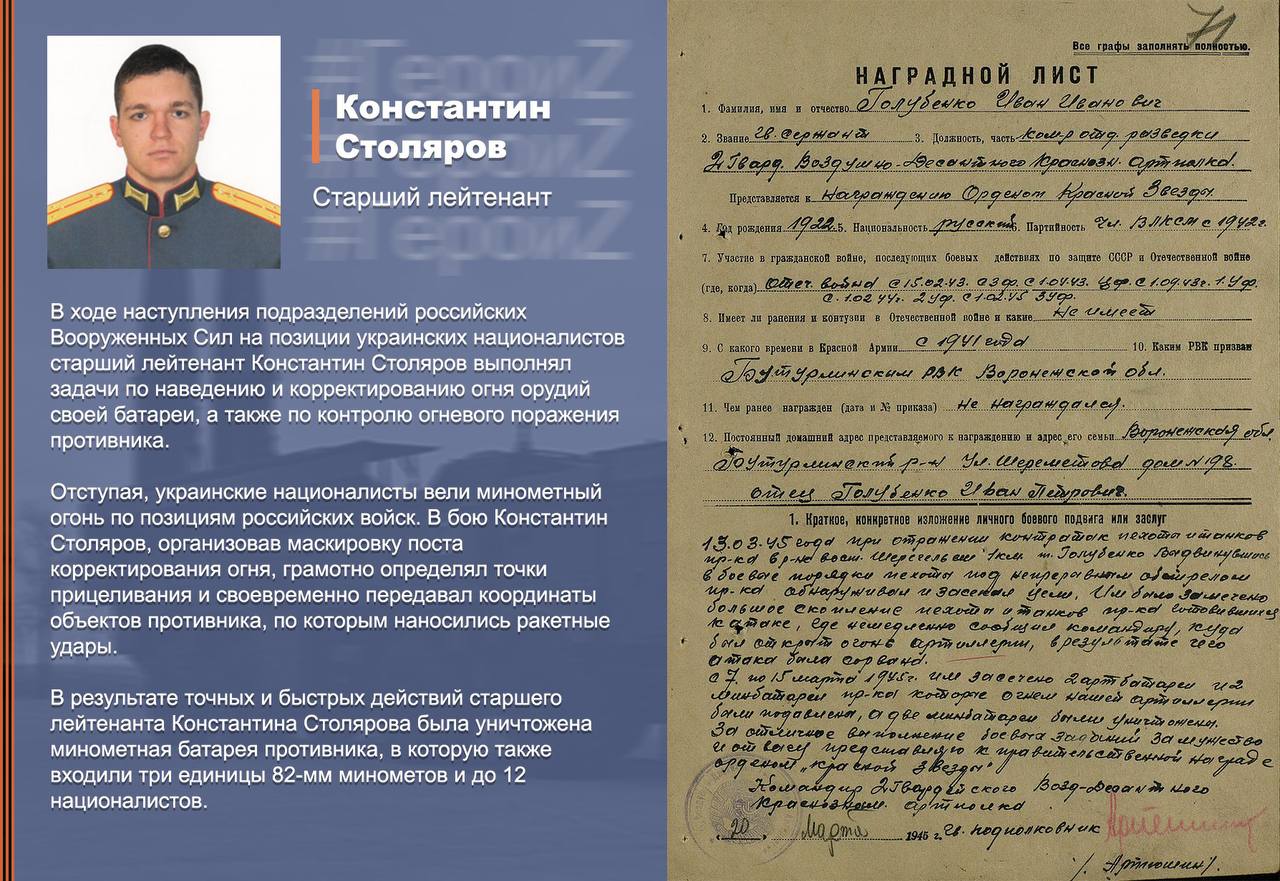 #ГероиZ
#ГероиZ
#ГероиZ
Константин
Столяров
Старший лейтенант
В ходе наступления подразделений российских
Вооруженных Сил на позиции украинских националистов
старший лейтенант Константин Столяров выполнял
задачи по наведению и корректированию огня орудий
своей батареи, а также по контролю огневого поражения
противника.
Отступая, украинские националисты вели минометный
огонь по позициям российских войск. В бою Константин
Столяров, организовав маскировку поста
корректирования огня, грамотно определял точки
прицеливания и своевременно передавал координаты
объектов противника, по которым наносились ракетные
удары.
В результате точных и быстрых действий старшего
лейтенанта Константина Столярова была уничтожена
минометная батарея противника, в которую также
входили три единицы 82-мм минометов и до 12
националистов.
71
Все графы заполнять полностью.
НАГРАДНОЙ ЛИСТ
1. Фамилия, имя и отчество Голубенко Иван Иванович
2. Звание Гв. сержант 3. Должность, часть ком-р отд. разведки
2 Гвард. Воздушно-Десантного Краснозн. артполка.
Представляется к награждению Орденом Красной Звезды
4. Год рождения 1922. 5. Национальность русский 6. Партийность Чл. ВЛКСМ с 1942г.
7. Участие в гражданской войне, последующих боевых действиях по защите СССР и Отечественной войне
(где, когда) Отеч. война с 15.02.43. СЗФ. с 1.04.43. ЦФ. с 1.09.43г. 1 УФ.
с 1.02.44г. 2 УФ. с 1.02.45 3 УФ.
8. Имеет ли ранения и контузии в Отечественной войне и какие Не имеет
9. С какого времени в Красной Армии с 1941 года 10. Каким РВК призван
Бутурлинским РВК Воронежской обл.
11. Чем ранее награжден (дата и № приказа) не награждался.
12. Постоянный домашний адрес представляемого к награждению и адрес его семьи Воронежская обл.
Бутурлинский р-н Ул. Шереметова дом N 98.
отец Голубенко Иван Петрович.
1. Краткое, конкретное изложение личного боевого подвига или заслуг
13.03.45 года при отражении контратак пехоты и танков
пр-ка в р-не вост. 1км т. Голубенко Выдвинувшись
в боевые порядки пехоты под непрерывным обстрелом
пр-ка обнаруживал и засекал цели. Им было замечено
большое скопление пехоты и танков пр-ка готовившихся
к атаке, где немедленно сообщил командиру, куда
был открыт огонь артиллерии, в результате чего
атака была сорвана.
С 7 по 15 марта 1945г. им засечено 2 артбатареи и 2
минбатареи пр-ка которые огнем нашей артиллерии
были подавлены, а две минбатареи были уничтожены.
За отличное выполнение боевых заданий за мужество
и отвагу представляю к правительственной награде
орденом „Красной Звезды"
Командир 2 Гвардейского Возд-Десантного
Краснознам. артполка
„20" Марта 1945 г. Гв. подполковник
/. Артюшин/.